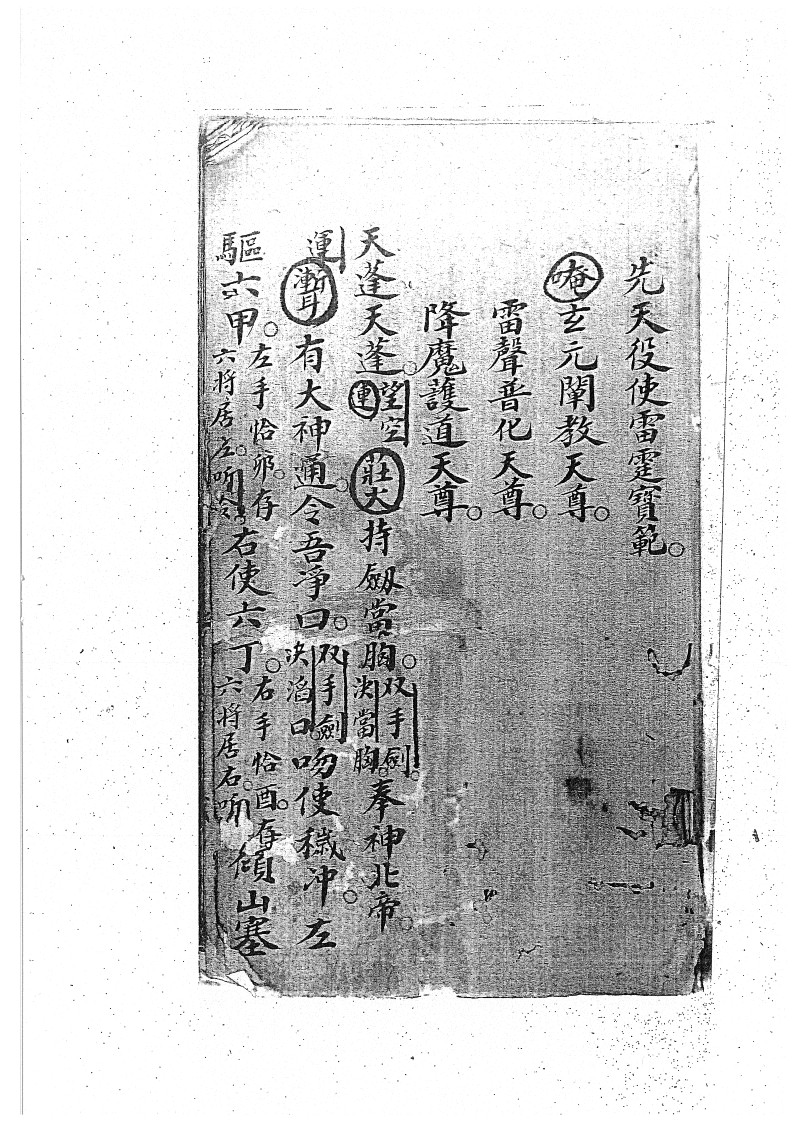 先天役使雷霆寶範。
唵玄元闡教天尊。
雷聲普化天尊。
降魔護道天尊。
天蓬天蓬。望空運莊大持劔當胸。双手劍决當胸。奉神北帝。
運有大神通。令吾凈口。双手劍决滔口。吻使穢冲。左
驅六甲。左手恰夘。存六将居左。听令。右使六丁。右手恰酉。存六将居右。听傾山塞